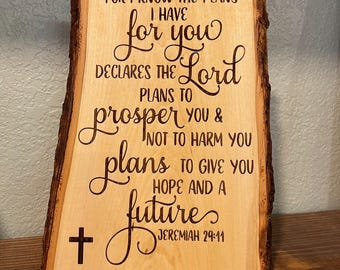 FOR I KNOW THE PLANS
I HAVE
for you
DECLARES THE Lord
PLANS TO
prosper YOU &
NOT TO HARM YOU
plans TO GIVE YOU
HOPE AND A
future
JEREMIAH 29:11